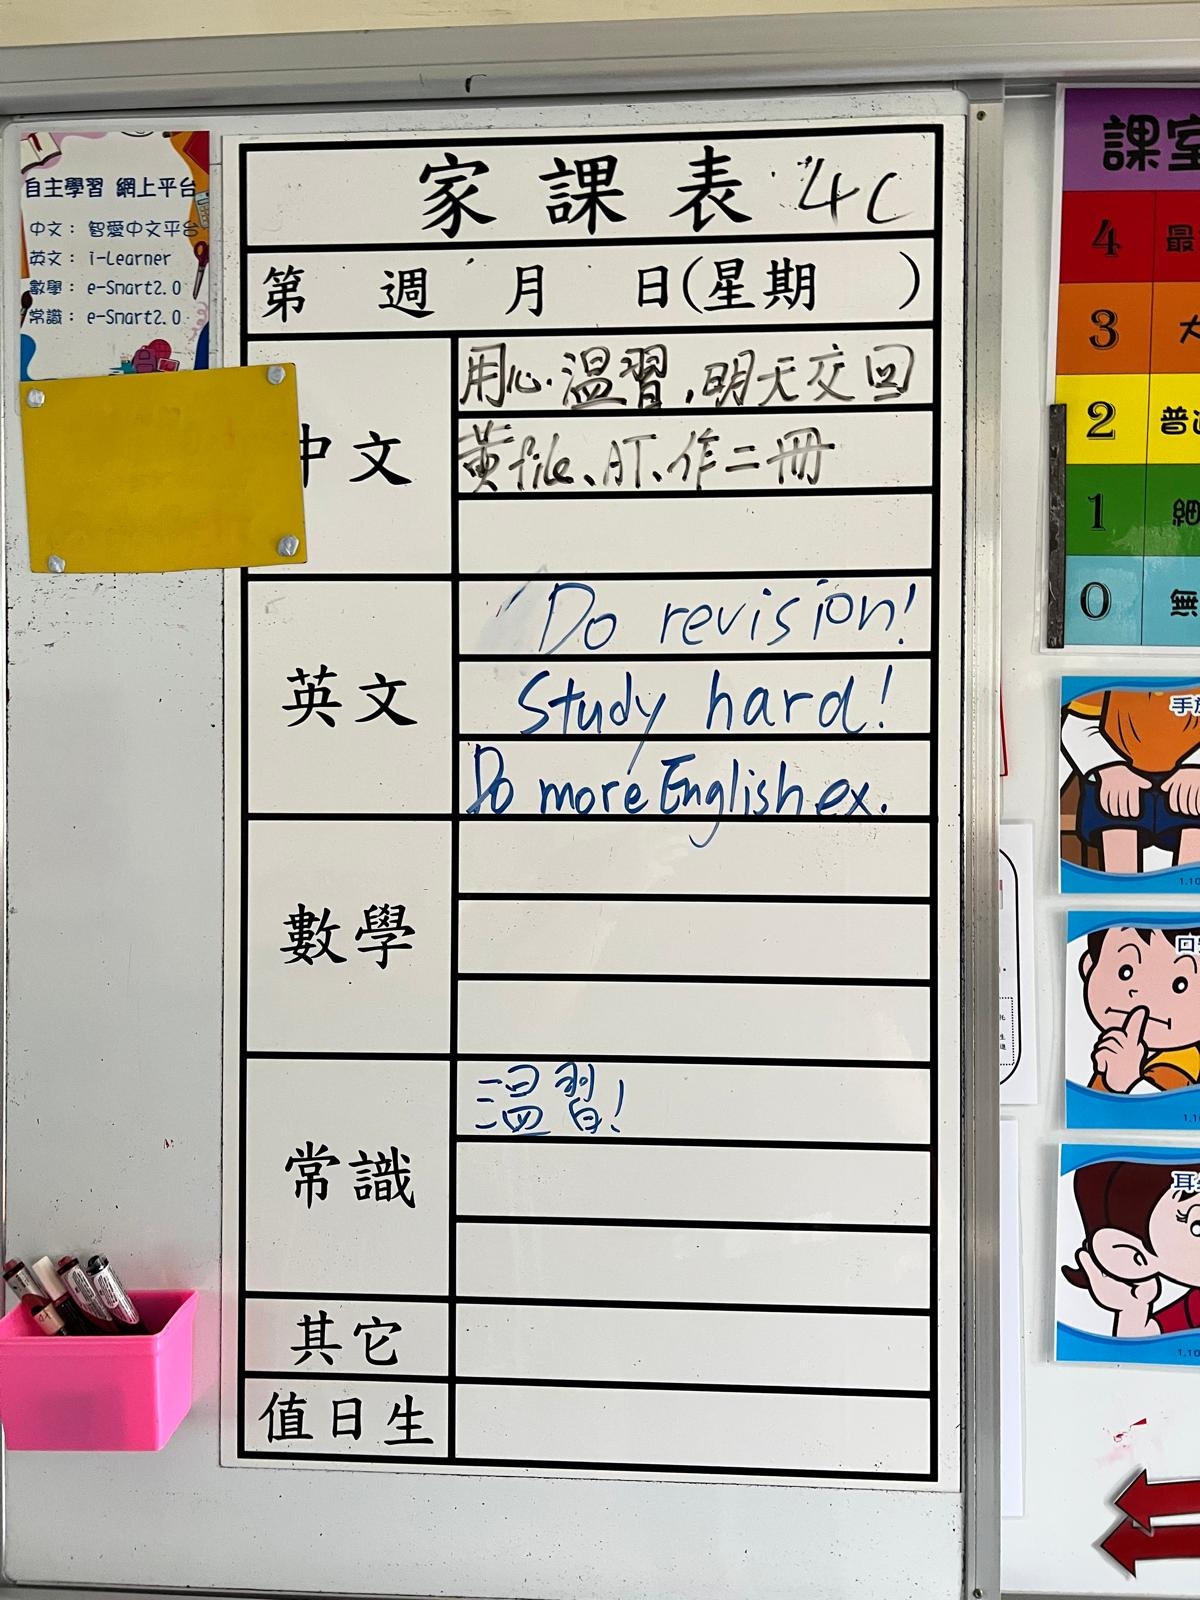 自主學習 網上平台
中文： 智愛中文平台
英文： i-Learner
數學： e-Smart2.0
常識： e-Smart2.0
家課表 4C
第 週 月 日(星期 )
中文
用心温習,明天交回
黃file、AT、作二冊
英文
Do revision!
Study hard!
Do more English ex.
數學
常識
温習!
其它
值日生
課室
4 最
3 大
2 普通
1 細
0 無
手放
回
耳
1.10
1.10
1.10